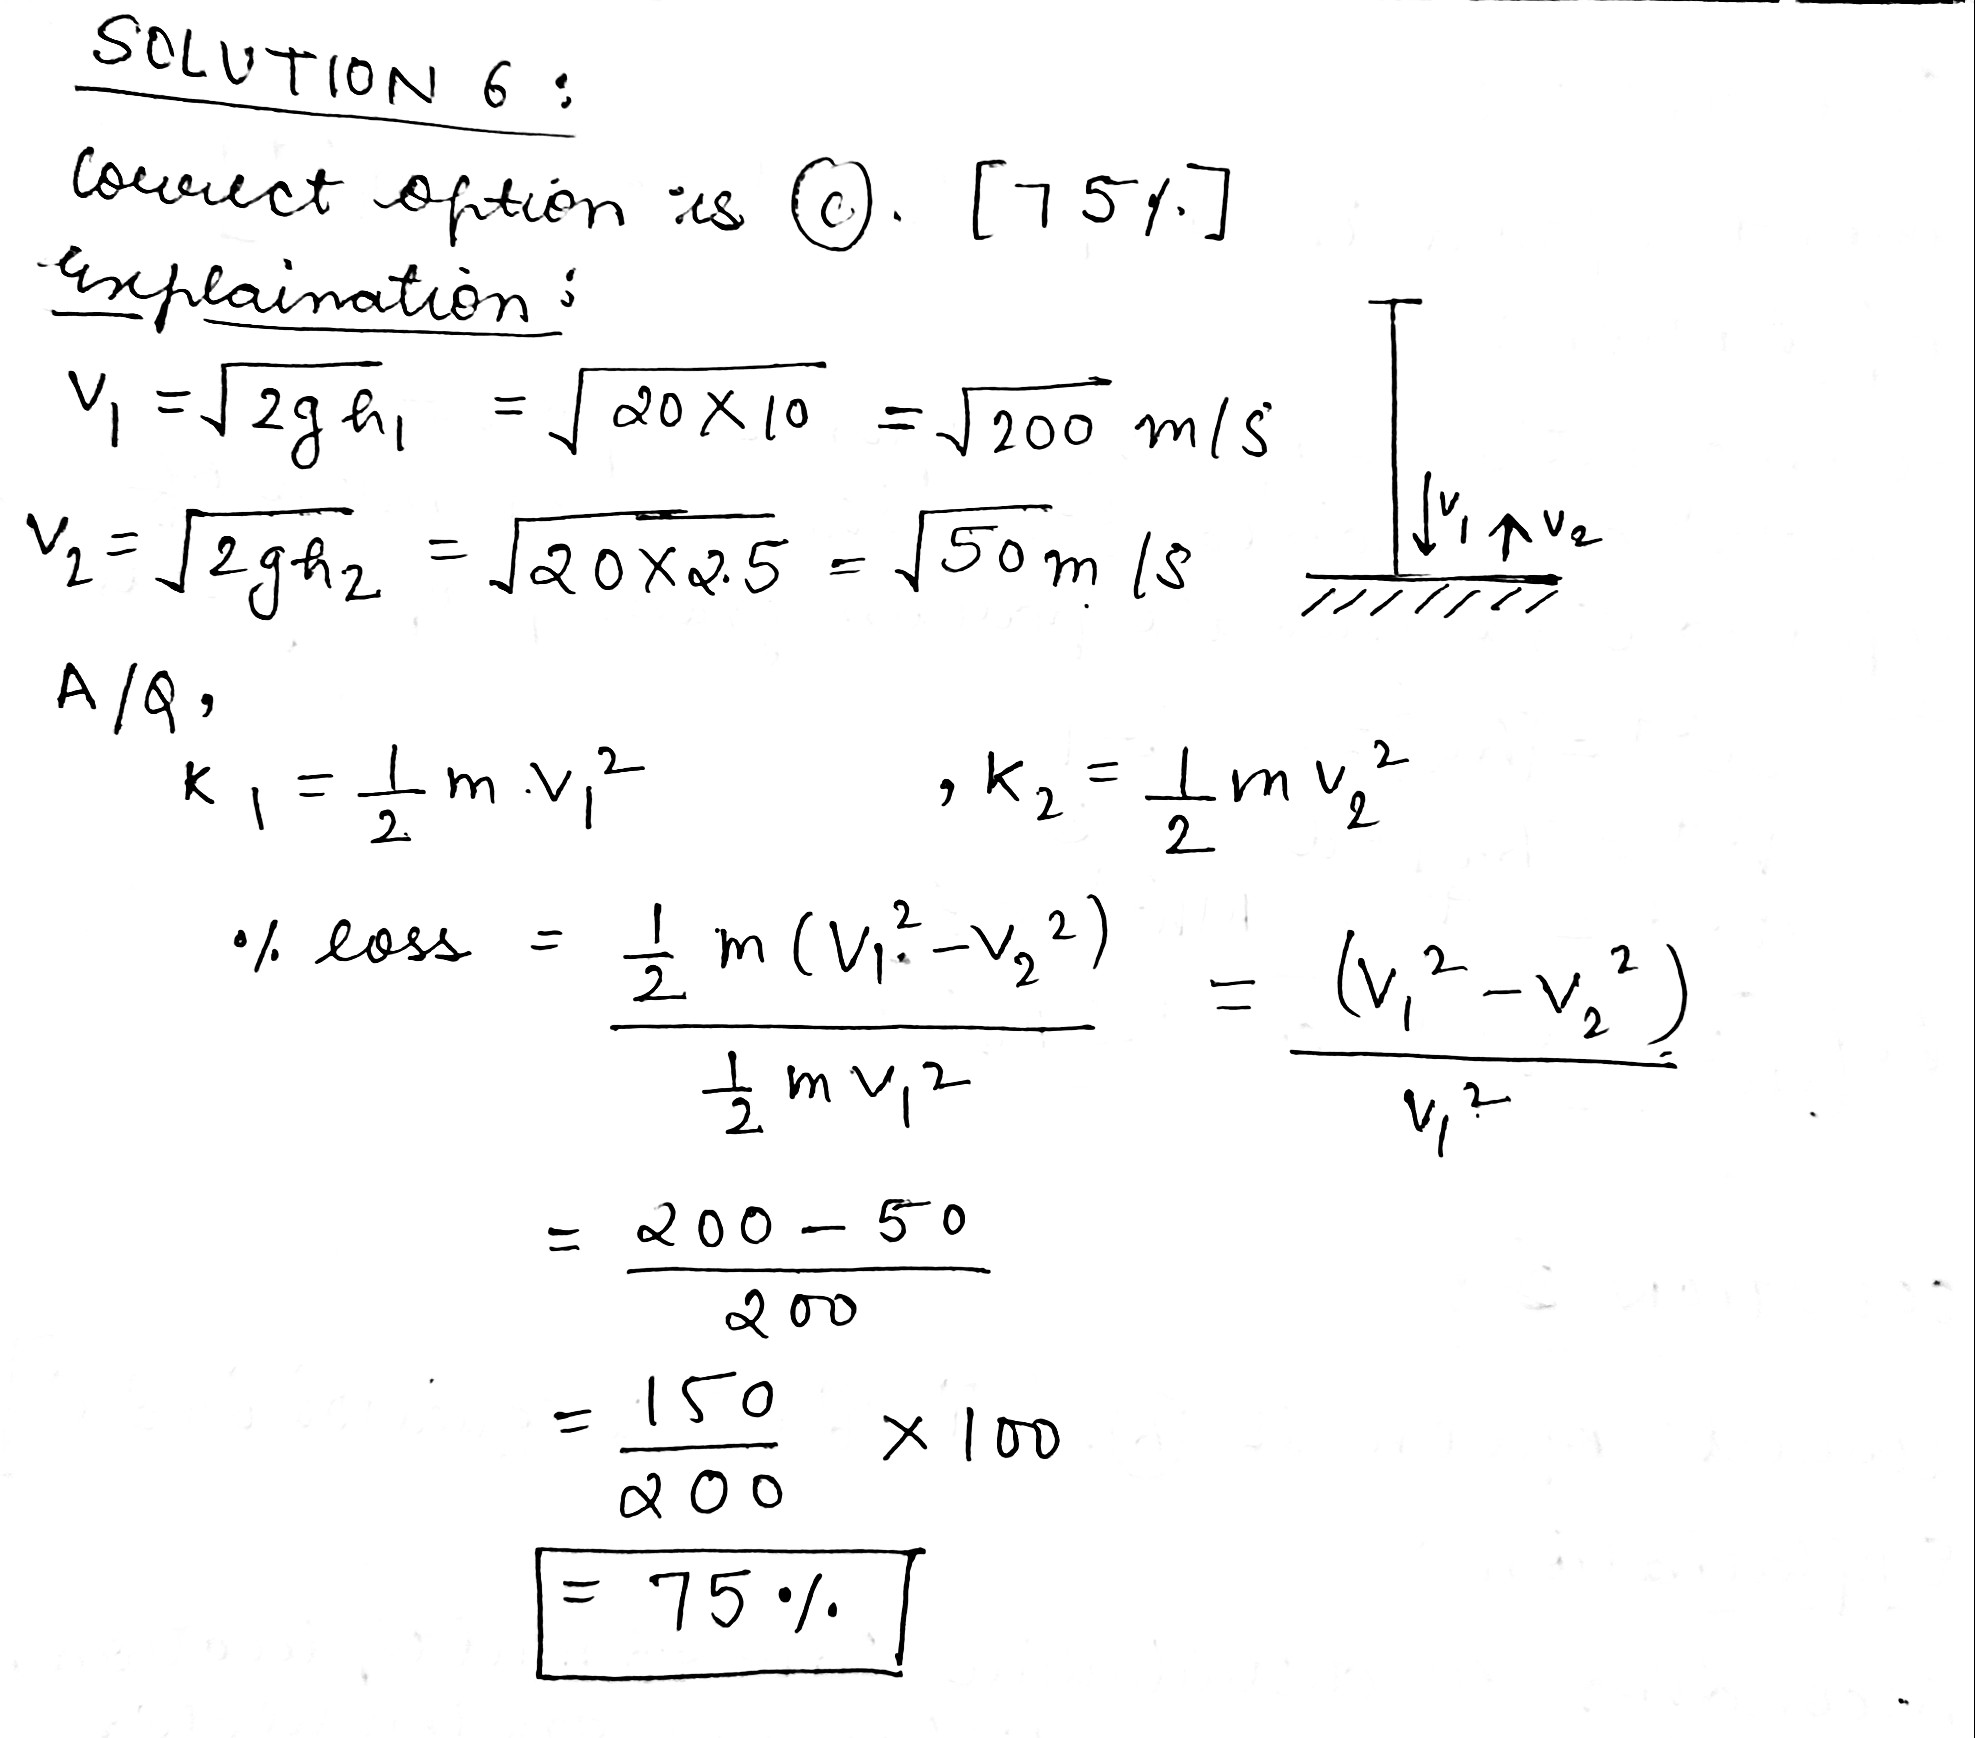 SOLUTION 6 :
Correct option is (c). [75%]
Explaination :
V₁ = √2gh₁ = √20×10 = √200 m/s
V₂ = √2gh₂ = √20×2.5 = √50 m/s
↓V₁ ↑V₂
A/Q,
K₁ = 1/2 m.v₁² , K₂ = 1/2 m v₂²
% loss = 1/2 m (V₁² – V₂²) / 1/2 m v₁² = (V₁² – V₂²) / V₁²
= 200 – 50 / 200
= 150 / 200 × 100
= 75 %